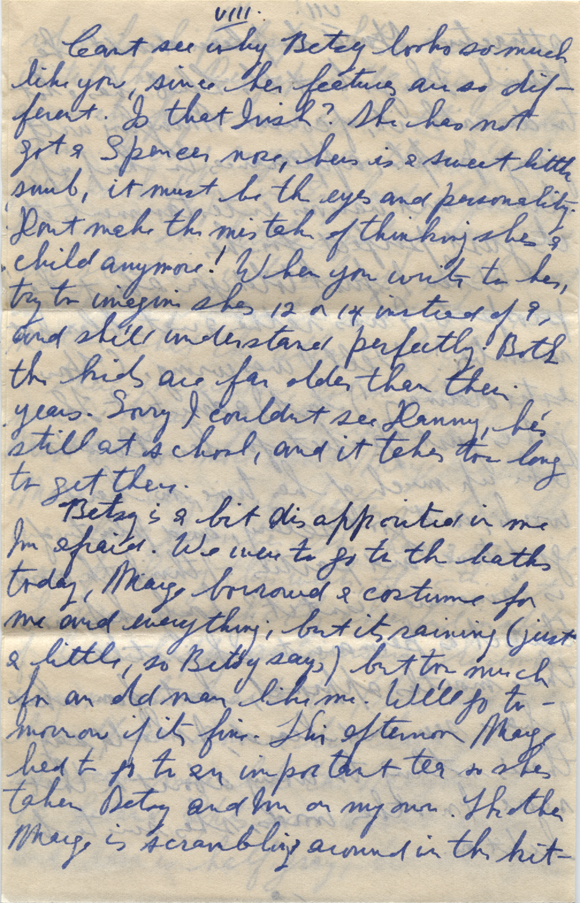 VIII.
Cant see why Betsy looks so much
like you, since her features are so dif-
ferent. Is that Irish? She has not
got a Spencer nose, hers is a sweet little
snub, it must be the eyes and personality.
Dont make the mistake of thinking shes a
child anymore! When you write to her,
try to imagine shes 12 or 14 instead of 9,
and she'll understand perfectly. Both
the kids are far older than their
years. Sorry I couldn't see Danny, he's
still at school, and it takes too long
to get there.
Betsy is a bit disappointed in me
Im afraid. We were to go to the baths
today, Marge borrowed a costume for
me and everything, but its raining (just
a little, so Betsy says) but too much
for an old man like me. We'll go to-
morrow if its fine. This afternoon Marge
had to go to an important tea so shes
taken Betsy and Im on my own. The other
Marge is scrambling around in the kit-